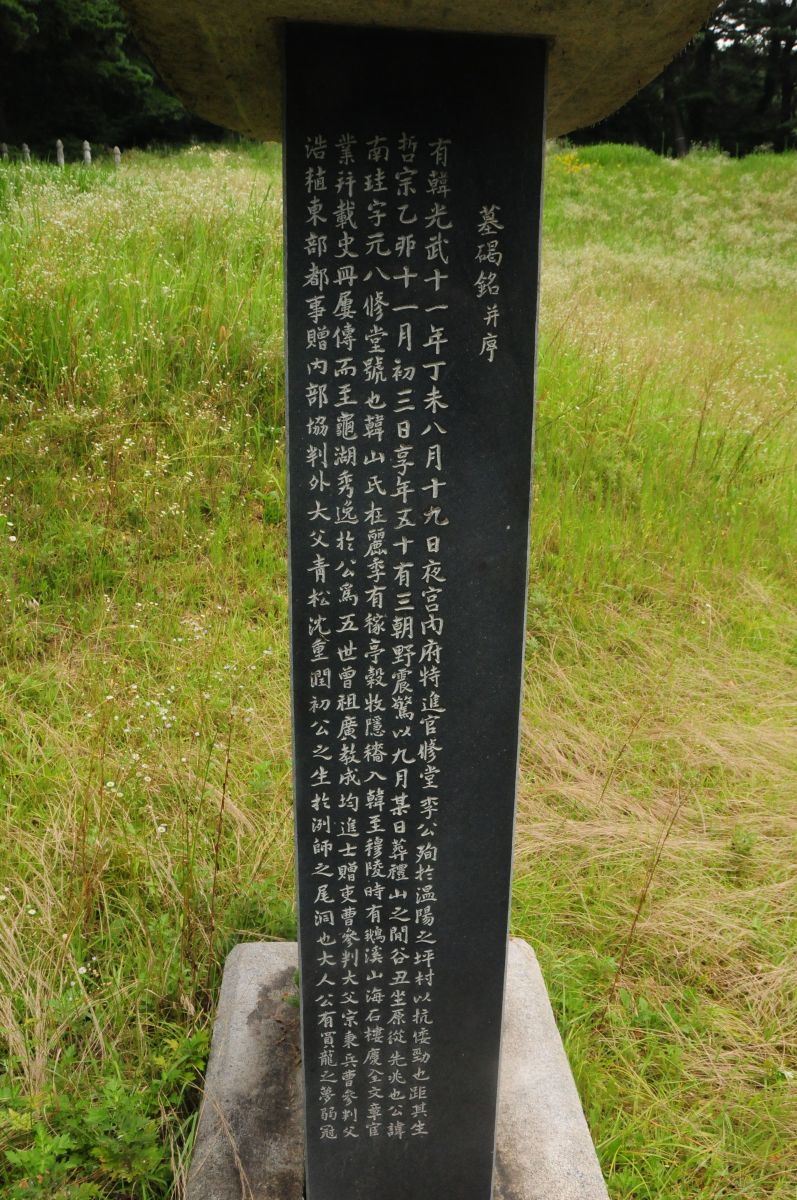 墓碣銘并序
有韓光武十一年丁未八月十九日夜宮內府特進官修堂李公殉於温陽之坪村以抗倭勁也距其生
哲宗乙卯十一月初三日享年五十有三朝野震驚以九月某日葬禮山之閒谷丑坐原從先兆也公諱
南珪字元八修堂號也韓山氏在麗季有稼亭糓牧隱穡入韓至穆陵時有鵝溪山海石樓慶全文章官
業幷載史冊屢傳而至龜湖秀逸於公爲五世曾祖廣敎成均進士贈吏曹參判大父宗秉兵曹參判父
浩稙東部都事贈內部協判外大父青松沈重潤初公之生於洌師之尾洞也大人公有買龍之夢弱冠